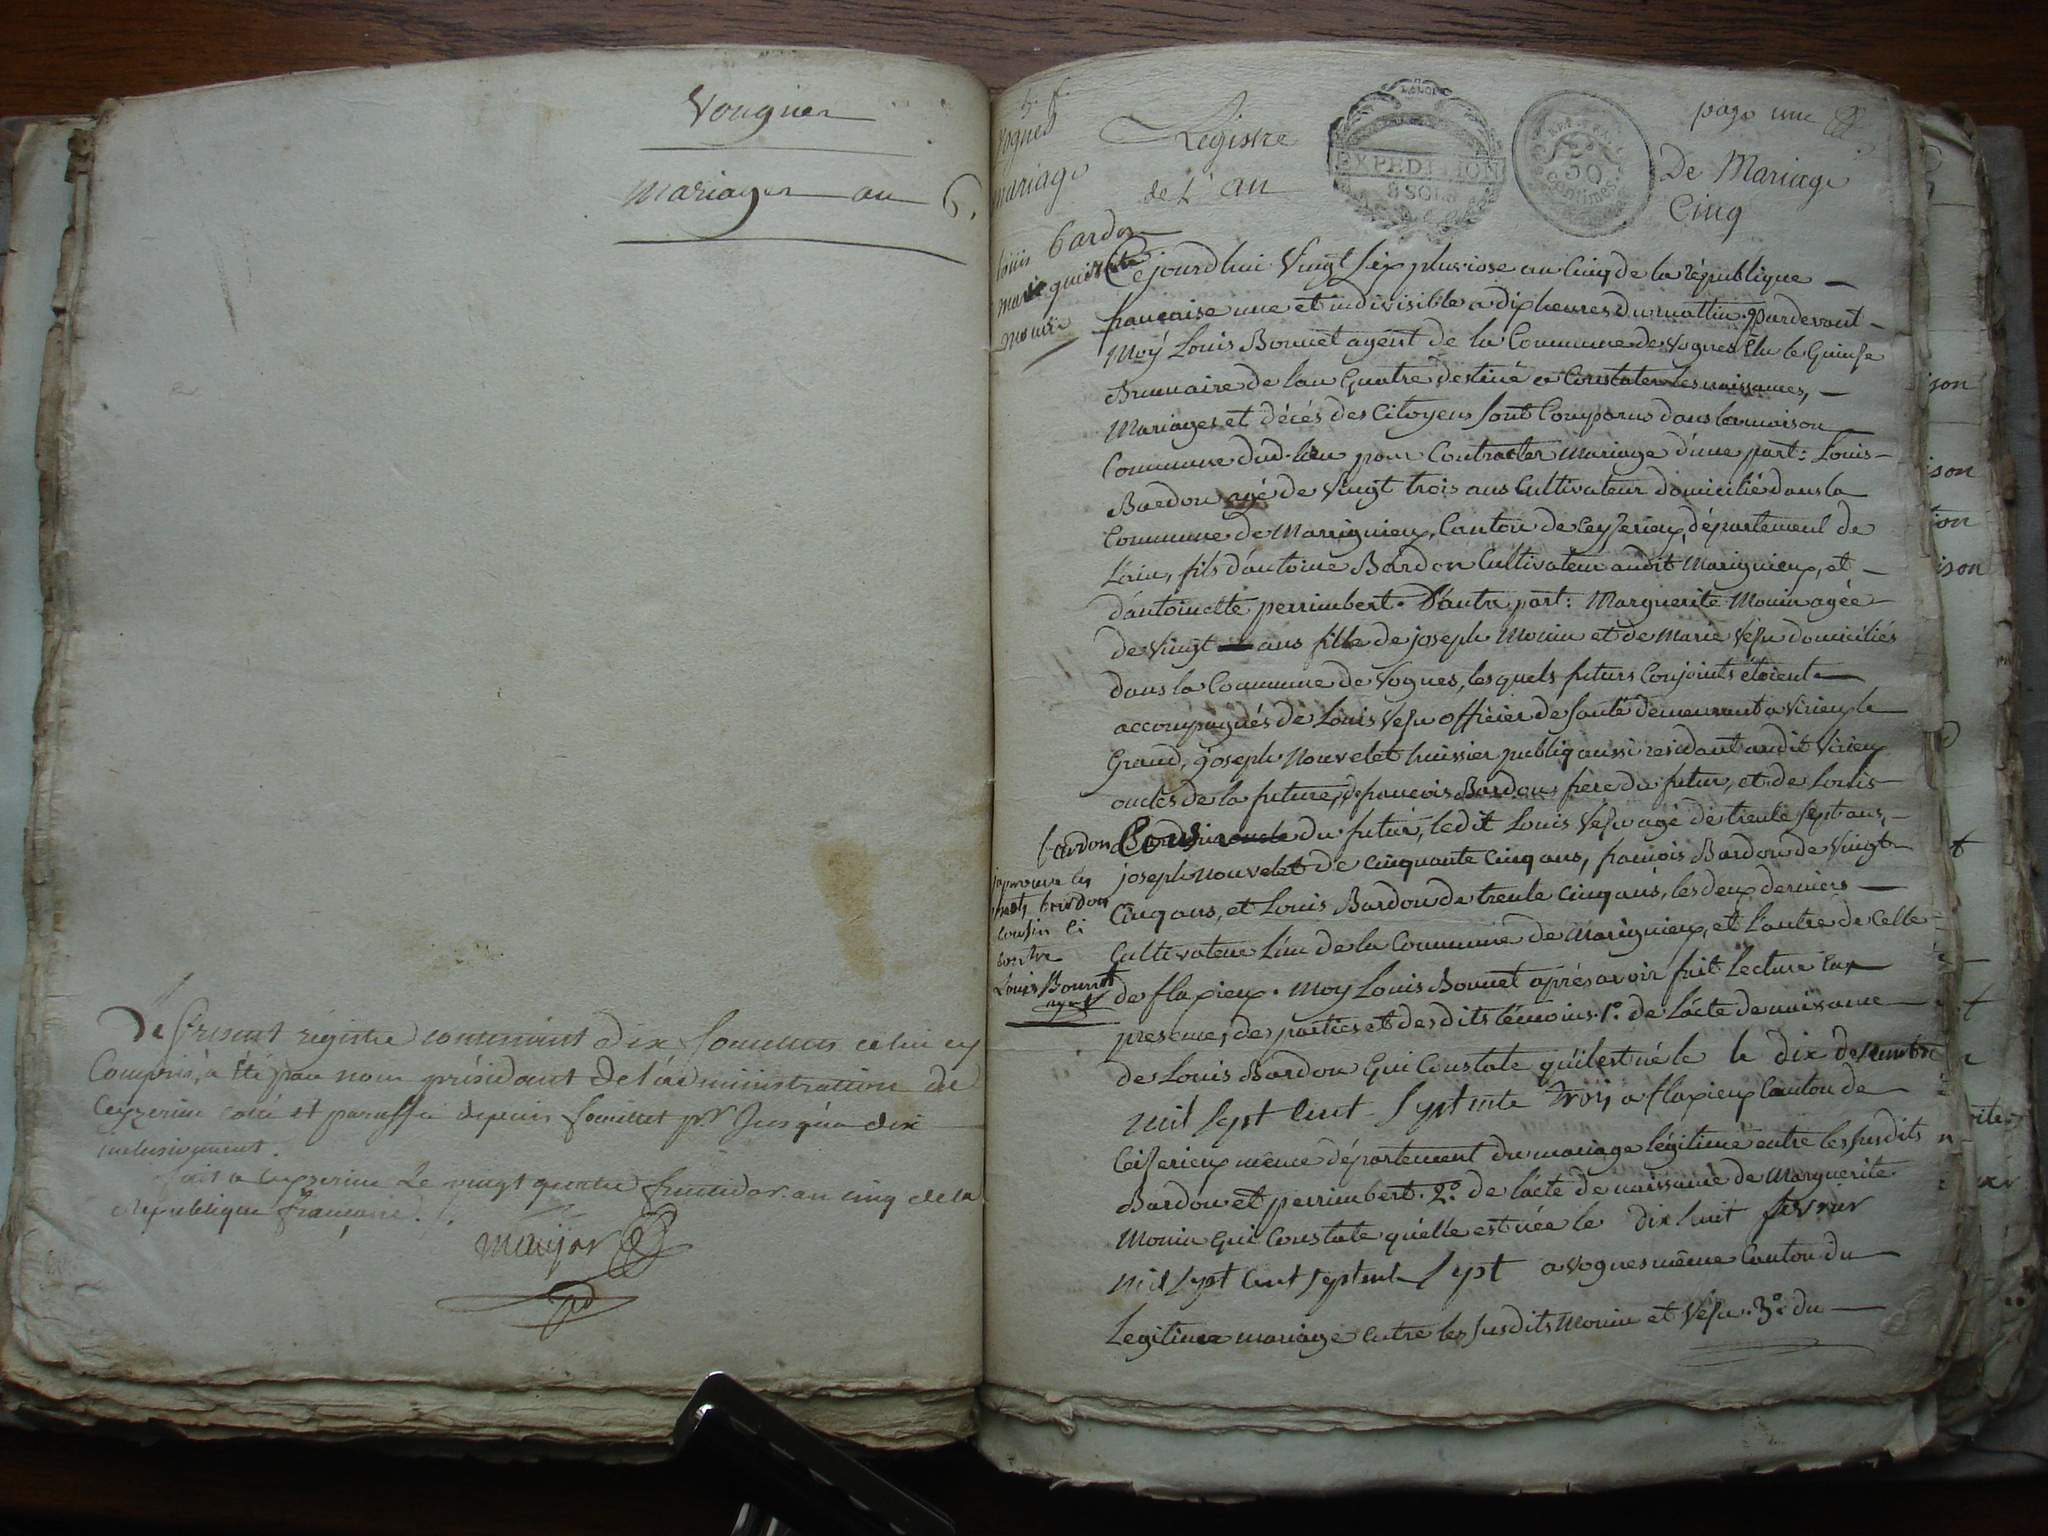 Vougnes
Mariages an 6.
Le présent régistre contenant dix feuillets celui cy
Compris, a été par nous président de l'administration de
Ceyzerieu coté et paraffé depuis feuillet pr. Jusqu'a dix
inclusivement.
fait a Ceyzerieu Le vingt quatre fructidor an cinq de la
république française.
page une
Registre
De Mariage
de L'an
Cinq
EXPEDITION
8 SOLS
50
Centimes
Vognes
mariage
louis bardon
marguerite
monin
Cejourdhui Vingt six pluviose an Cinq de la république
francaise une et indivisible a dix heures du mattin. Pardevant
Moÿ Louis Bonnet agent de la Commune de Vognes Elu le Quinse
Brumaire de lan Quatre destiné a Constater les naissances,
Mariages et décés des Citoyens sont Comparus dans la maison
Commune dud. lieu pour Contracter Mariage d'une part: Louis
Bardon agé de Vingt trois ans Cultivateur domicilié dans la
Commune de Marignieu, Canton de Ceyserieux, département de
L'ain, fils d'antoine Bardon Cultivateur audit Marignieux, et
d'antoinette perrimbert. D'autre part: Marguerite Monin agée
de Vingt ans fille de joseph Monin et de Marie Vesu domiciliés
dans la Commune de Vognes, lesquels futurs Conjoints étoient
accompagnés de Louis Vesu officier de santé demeurant a Virieu le
Grand, joseph Nouvelet huissier publiq aussi residant audit Virieu
oncles de la future, de francois Bardon frere du futur, et de Louis
bardon Cousin du futur, ledit Louis Vesu agé de trente sept ans,
joseph nouvelet de cinquante cinq ans, francois Bardon de Vingt
Cinq ans, et Louis Bardon de trente cinq ans, les deux derniers
Cultivateur L'un de la Commune de Marignieux, et l'autre de Celle
de flaxieux. Moy Louis Bonnet aprés avoir fait Lecture en
presence des parties et desdits témoins 1.° de l'acte de naissance
de Louis Bardon Qui Constate qu'il est né le le dix decembre
mil sept cent septente trois a flaxieux Canton de
Ceiserieux même département du mariage légitime entre les susdits
Bardon et perrimbert. 2.° de l'acte de naissance de Marguerite
Monin Qui Constate qu'elle est née le dix huit fevrier
mil sept cent septente sept a vognes même Canton du
Legitime mariage entre les susdits Monin et Vesu. 3.° du
japrouve les
mots bardon
cousin ci
contre
Louis Bonnet
agent